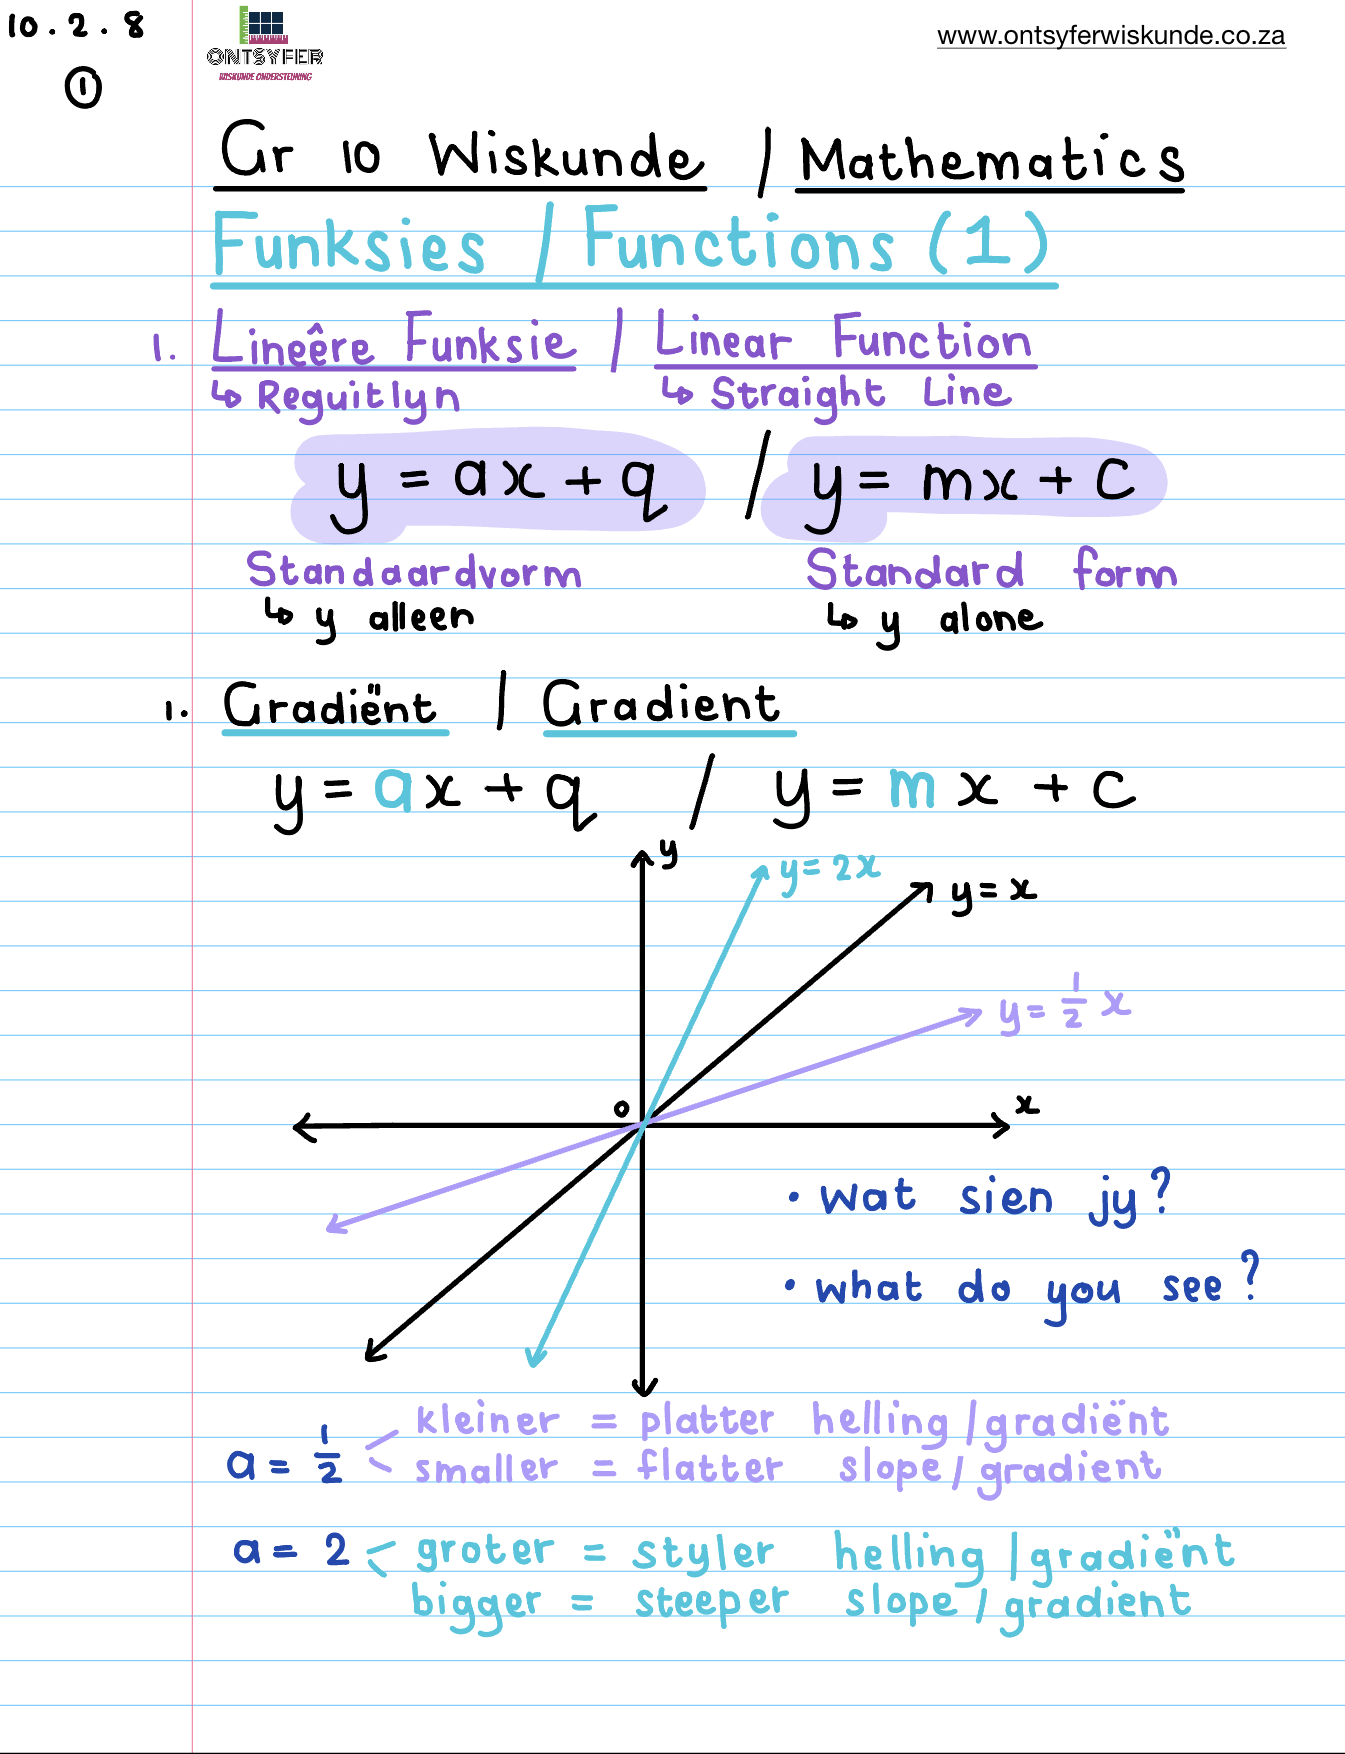 10.2.8
①
ONTSYFER
WISKUNDE ONDERSTEUNING
www.ontsyferwiskunde.co.za
Gr 10 Wiskunde / Mathematics
Funksies / Functions (1)
1. Lineêre Funksie / Linear Function
↳ Reguitlyn ↳ Straight Line
y = ax + q / y = mx + c
Standaardvorm Standard form
↳ y alleen ↳ y alone
1. Gradiënt / Gradient
y = ax + q / y = mx + c
y
y = 2x
y = x
y = 1/2 x
0
x
• wat sien jy?
• what do you see?
a = 1/2 < kleiner = platter helling / gradiënt
smaller = flatter slope / gradient
a = 2 < groter = styler helling / gradiënt
bigger = steeper slope / gradient